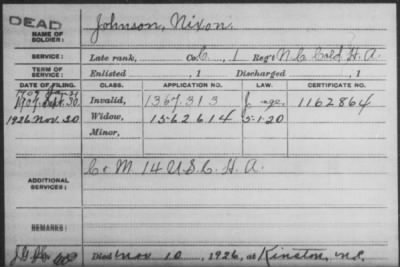 DEAD
NAME OF SOLDIER: Johnson, Nixon.
SERVICE: Late rank, Co. C, 1 Reg't N.C. Cold H.A.
TERM OF SERVICE: Enlisted , 1 Discharged , 1
DATE OF FILING. CLASS. APPLICATION NO. LAW. CERTIFICATE NO.
Invalid, 1367313 age. 1162864
1926 Nov. 30 Widow, 1562614 5-1-20
Minor,
ADDITIONAL SERVICES: C & M. 14 U.S.C. H.A.
REMARKS:
Died Nov. 10, 1926, at Kinston, N.C.